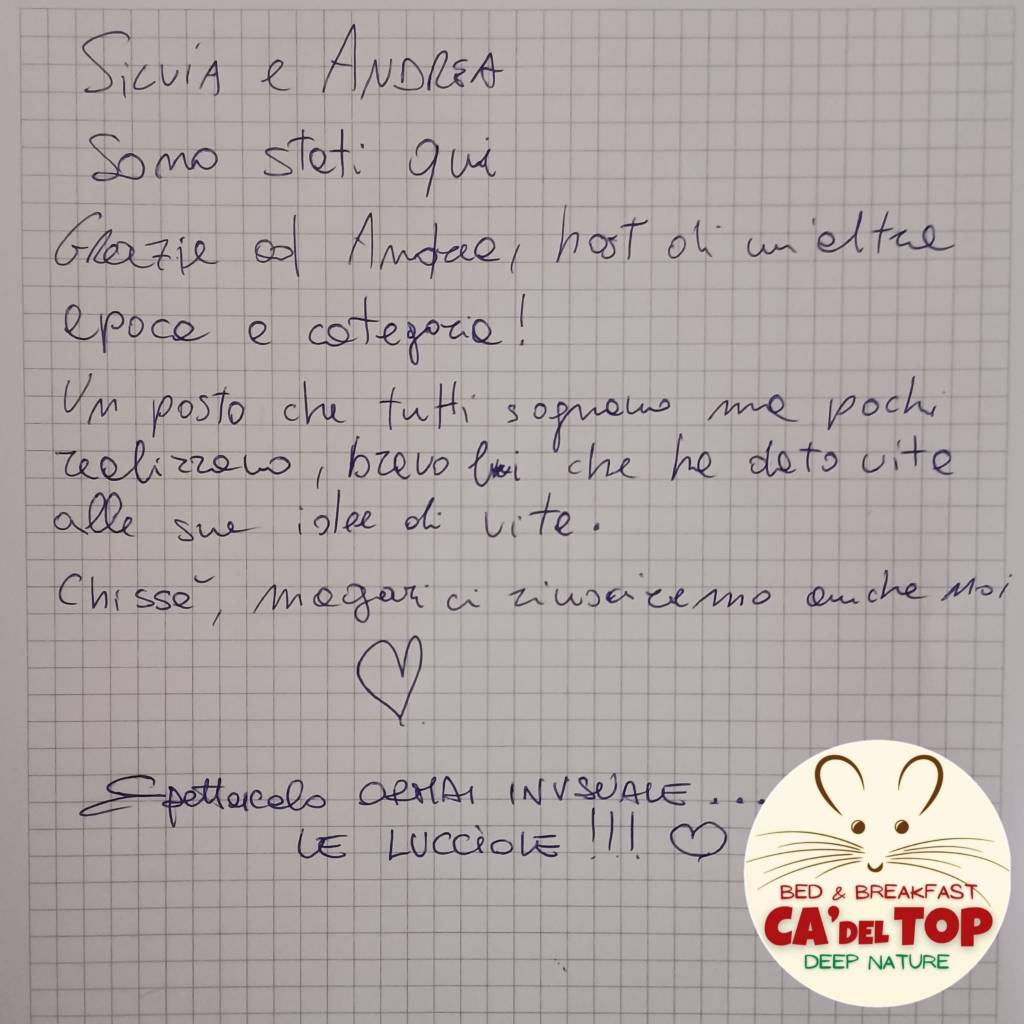 Silvia e ANDREA
Sono stati qui
Grazie ad Andrea, host di un'altra
epoca e categoria!
Un posto che tutti sognano ma pochi
realizzano, bravo lui che ha dato vita
alle sue idee di vita.
Chissà, magari ci riusciremo anche noi
Spettacolo ORMAI INUSUALE...
LE LUCCiOLE !!!
BED & BREAKFAST
CA' DEL TOP
DEEP NATURE